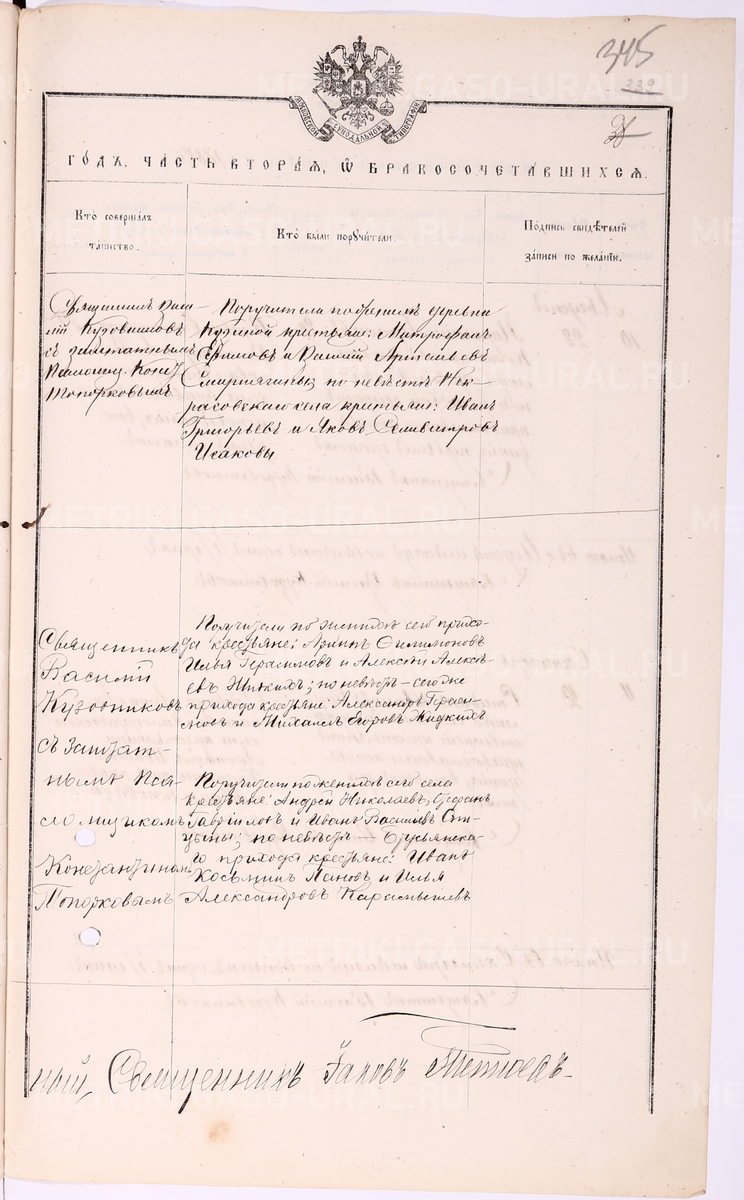 345
339
МОСКОВСКОЙ СѴНОДАЛЬНОЙ ТИПОГРАФІИ
28
ГОДЪ. ЧАСТЬ ВТОРАЯ, Ѿ БРАКОСОЧЕТАВШИХСЯ.
Кто совершалъ таинство.
Кто были поручители.
Подпись свидѣтелей записи по желанію.
Священникъ Васи-
лій Кузовниковъ
съ заштатнымъ
Псаломщ. Конст.
Топорковымъ
Поручители по женихѣ деревни
крестьяне: Митрофанъ
Ефимовъ и Василій Артемьевъ
Смирнягины, по невѣстѣ Нек-
расовскаго села крестьяне: Иванъ
Григорьевъ и Яковъ Селиверстровъ
Исаковы
Священникъ
Василій
Кузовниковъ
съ заштат-
нымъ Пса-
ломщикомъ
Константиномъ
Топорковымъ
Поручители по женихѣ сего прихо-
да крестьяне: Филимоновъ
Илья Герасимовъ и Алексѣй Алексѣ-
евъ Жидкихъ; по невѣстѣ – сего же
прихода крестьяне: Александръ Гераси-
мовъ и Михаилъ Егоровъ Жидкихъ
Поручители по женихѣ сего села
крестьяне: Андрей Николаевъ, Стефанъ
Гавріиловъ и Иванъ Васильевъ
по невѣстѣ — Брусянска-
го прихода крестьяне: Иванъ
Косьминъ Пановъ и Илья
Александровъ Карамышевъ
ный, Священникъ Іаковъ